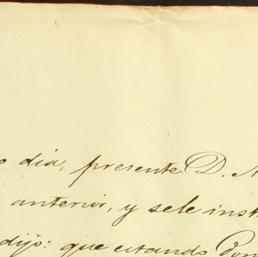 o dia, presente D. A
anterior, y se le inst
dijo: que estando Don